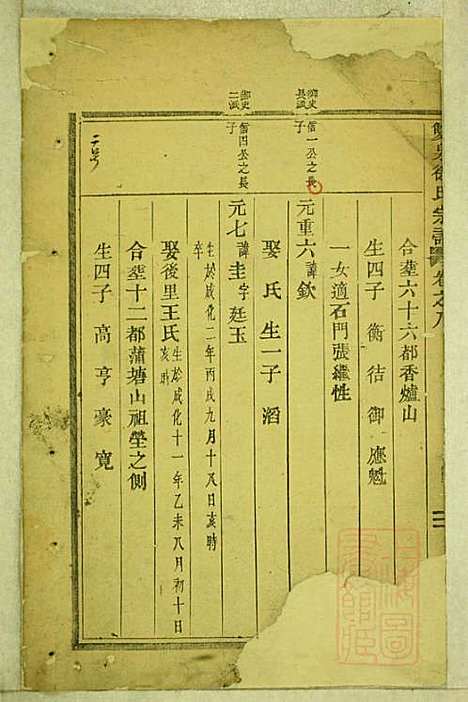 雙泉徐氏宗譜 卷之八
合塟六十六都香爐山
生四子 衡 䘛 御 應魁
一女適石門張繼性
御史長派 信一公之長子
元重六 諱欽
娶 氏 生一子 滔
御史二派 信四公之長子
元七 諱圭字廷玉
生於成化二年丙戌九月十八日亥時
卒
娶後里王氏 生於成化十一年乙未八月初十日亥時
合塟十二都蒲塘山祖塋之側
生四子 高 亨 豪 寬